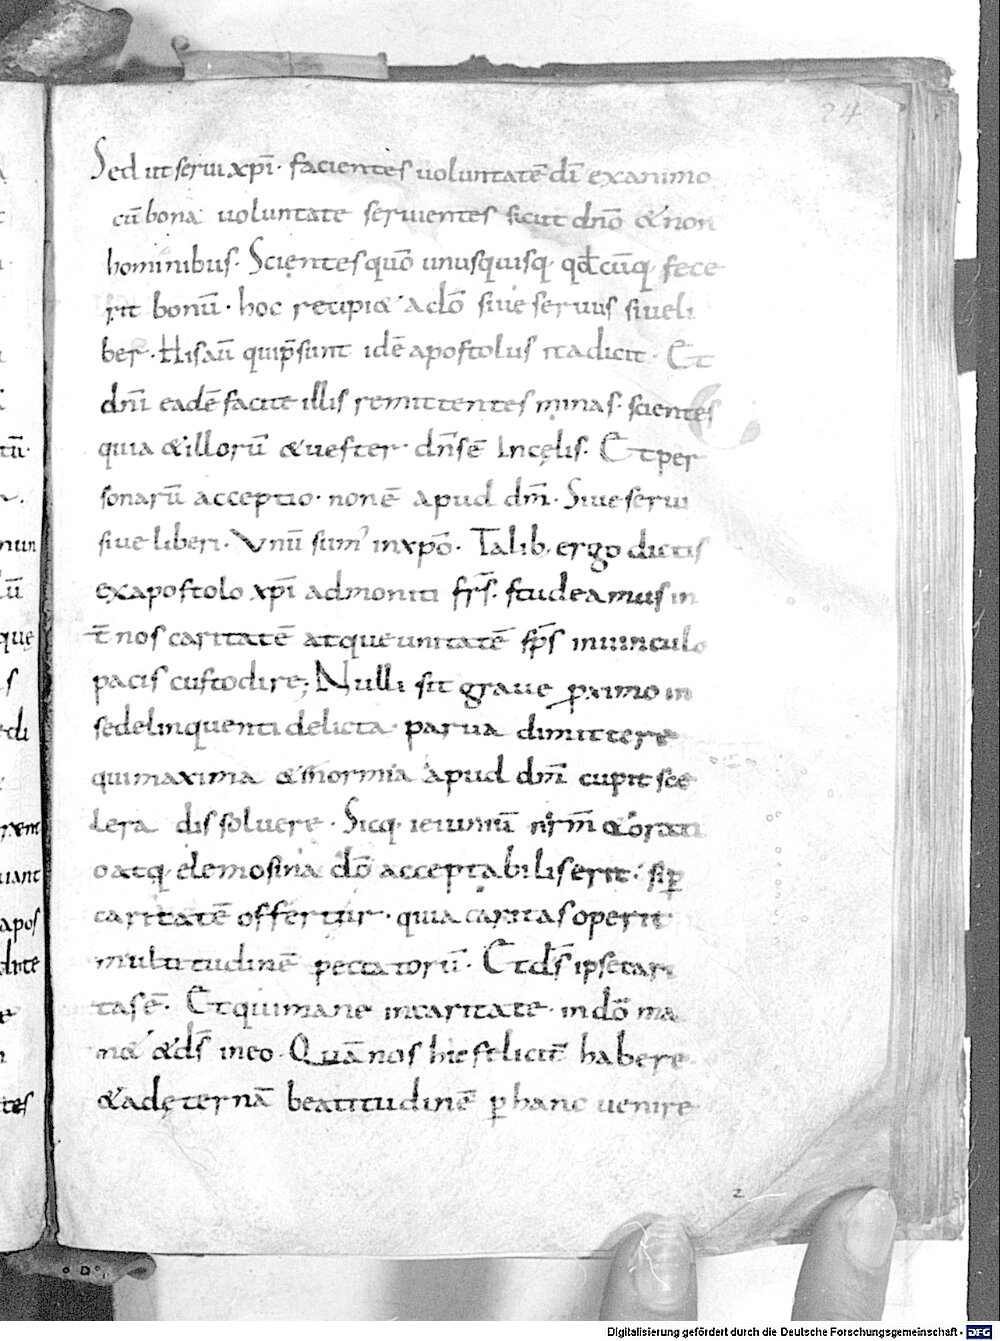 24
Sed ut serui xpi· facientes uoluntatē dī ex animo
cū bona uoluntate seruientes sicut dnō & non
hominibus· Scientes quō unusquisq· qđcūq· fece
rit bonū· hoc recipi& a dō siue seruus siue li
ber· His aū qui p̄sunt idē apostolus ita dicit· Et
dnī eadē facite illis remittentes minas· scientes
quia & illorū & uester· dn̄s ē In cęlis· Et per
sonarū acceptio· non ē apud dm̄· Siue serui
siue liberi· Vnū sum' in xpō· Talib· ergo dictis
ex apostolo xpī admoniti frs̄· studeamus in
t̄ nos caritatē atque unitatē sp̄s in uinculo
pacis custodire; Nulli sit graue proximo in
se delinquenti delicta parua dimittere
qui maxima & inormia apud dm̄ cupit sce
lera dissoluere· Sicq· ieiuniū nr̄m & orati
o atq· elemosina dō acceptabilis erit· si p̱
caritatē offertur· quia caritas operit
multitudinē peccatorū· Et ds̄ ipse cari
tas ē· Et qui mane in caritate· in dō ma
n& & ds̄ in eo· Quā nos hic feliciť habere
& ad ęternā beatitudinē p̱ hanc uenire
2
Digitalisierung gefördert durch die Deutsche Forschungsgemeinschaft - DFG